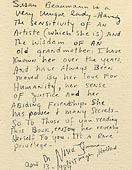 Susan Beaumann is a
very unique Lady - Having
The Sensitivity of An
Artiste (which she is) And
The Wisdom of AN
old grandmother. I have
Known her over the years
and have Always Been
moved By her love For
Humanity, her sense
of Justice And her
Abiding Friendship. She
has power & many secrets -
So To Those of you reading
This Book, respect her revealing
herself To you. It is a
privilege -